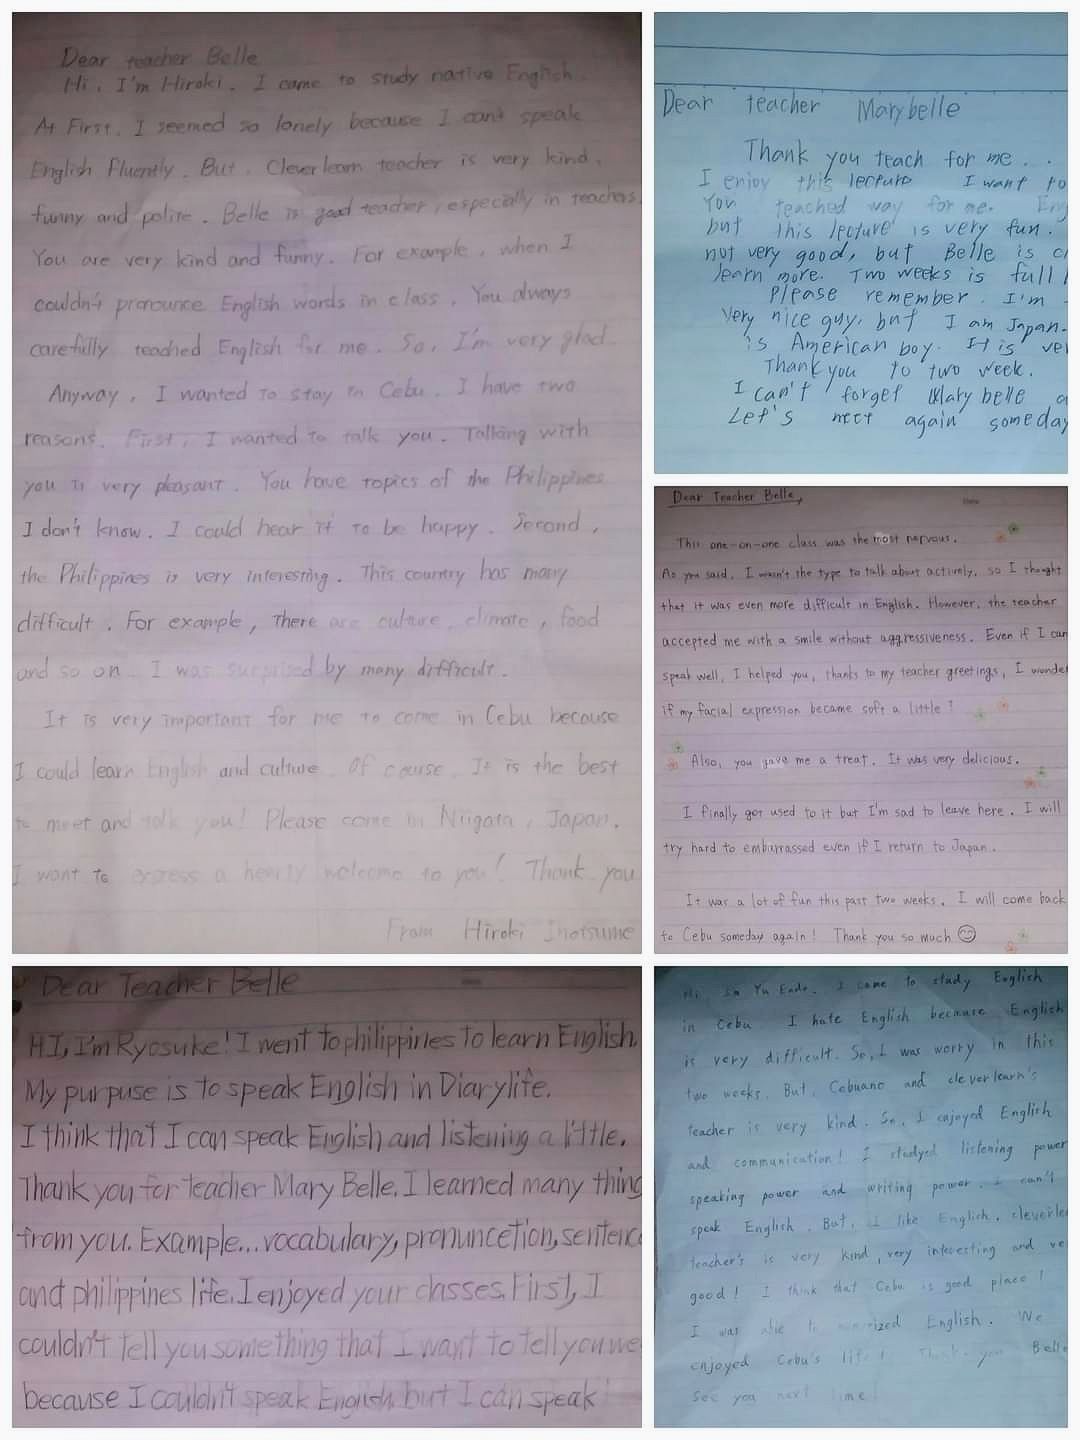 Dear teacher Belle
Hi, I'm Hiroki. I came to study native English.
At First, I seemed so lonely because I can't speak
English fluently. But, Cleverlearn teacher is very kind,
funny and polite. Belle is good teacher, especially in teachers.
You are very kind and funny. For example, when I
couldn't pronounce English words in class, You always
carefully teached English for me. So, I'm very glad.
Anyway, I wanted to stay in Cebu. I have two
reasons. First, I wanted to talk you. Talking with
you is very pleasant. You have topics of the Philippines
I don't know. I could hear it to be happy. Second,
the Philippines is very interesting. This country has many
difficult. For example, There are culture, climate, food
and so on. I was surprised by many difficult.
It is very important for me to come in Cebu because
I could learn English and culture. Of course, It is the best
to meet and talk you! Please come in Niigata, Japan.
I want to express a hearty welcome to you! Thank you
From Hiroki Inotsume
Dear teacher Marybelle
Thank you teach for me.
I enjoy this lecture I want to
You teached way for me. Eng
but this lecture is very fun.
not very good, but Belle is c
learn more. Two weeks is full
Please remember. I'm
very nice guy, but I am Japan
is American boy. It is ve
Thank you to two week.
I can't forget Mary belle a
Let's meet again someday
Dear Teacher Belle,
This one-on-one class was the most nervous.
As you said, I wasn't the type to talk about actively, so I thought
that it was even more difficult in English. However, the teacher
accepted me with a smile without aggressiveness. Even if I can
speak well, I helped you, thanks to my teacher greetings, I wonder
if my facial expression became soft a little?
Also, you gave me a treat. It was very delicious.
I finally got used to it but I'm sad to leave here. I will
try hard to emburrassed even if I return to Japan.
It was a lot of fun this past two weeks. I will come back
to Cebu someday again! Thank you so much
Dear Teacher Belle
HI, I'm Ryosuke! I went to philippines to learn English.
My purpuse is to speak English in Diarylife.
I think that I can speak English and listening a little.
Thank you for teacher Mary Belle. I learned many thing
from you. Example... vocabulary, pronuncetion, sentence
and philippines life. I enjoyed your classes. First, I
couldn't tell you something that I want to tell you we
because I couldn't speak English, but I can speak!
Hi, I'm Yu Endo. I came to study English
in Cebu I hate English because English
is very difficult. So, I was worry in this
two weeks. But, Cebuano and cleverlearn's
teacher is very kind. So, I enjoyed English
and communication! I studyed listening power
speaking power and writing power. I can't
speak English. But, I like English. cleverle
teacher's is very kind, very interesting and ve
good! I think that Cebu is good place!
I was able to English. We
enjoyed Cebu's life! Thank you Belle
See you next time!